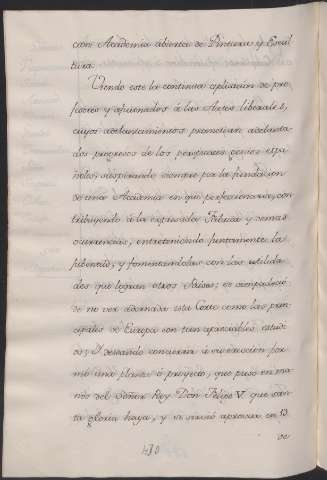 cion Academia abierta de Pintura y Escul
tura.
Viendo este la continua aplicacion de pro
fesores y aficionados á las Artes liberales,
cuyos adelantamientos prometian adelanta
dos progresos de los perspicaces genios espa
ñoles, suspirando siempre por la fundacion
de una Academia en que perfeccionarse, con
tribuyendo á la expresada Fabrica y demas
ocurrencias, entreteniendo juntamente la
jubentud, y fomentandolas con las utilida
des que logran otros Paises; en
de no ver adornada esta Corte como las prin
cipales de Europa con tan apreciables estudi
os; Y deseando concurrir á su ereccion for
mó una planta ó proyecto, que puso en ma
nos del Señor Rey Don Felipe V. que san
ta gloria haya, y se sirvió aprovar en 13
de